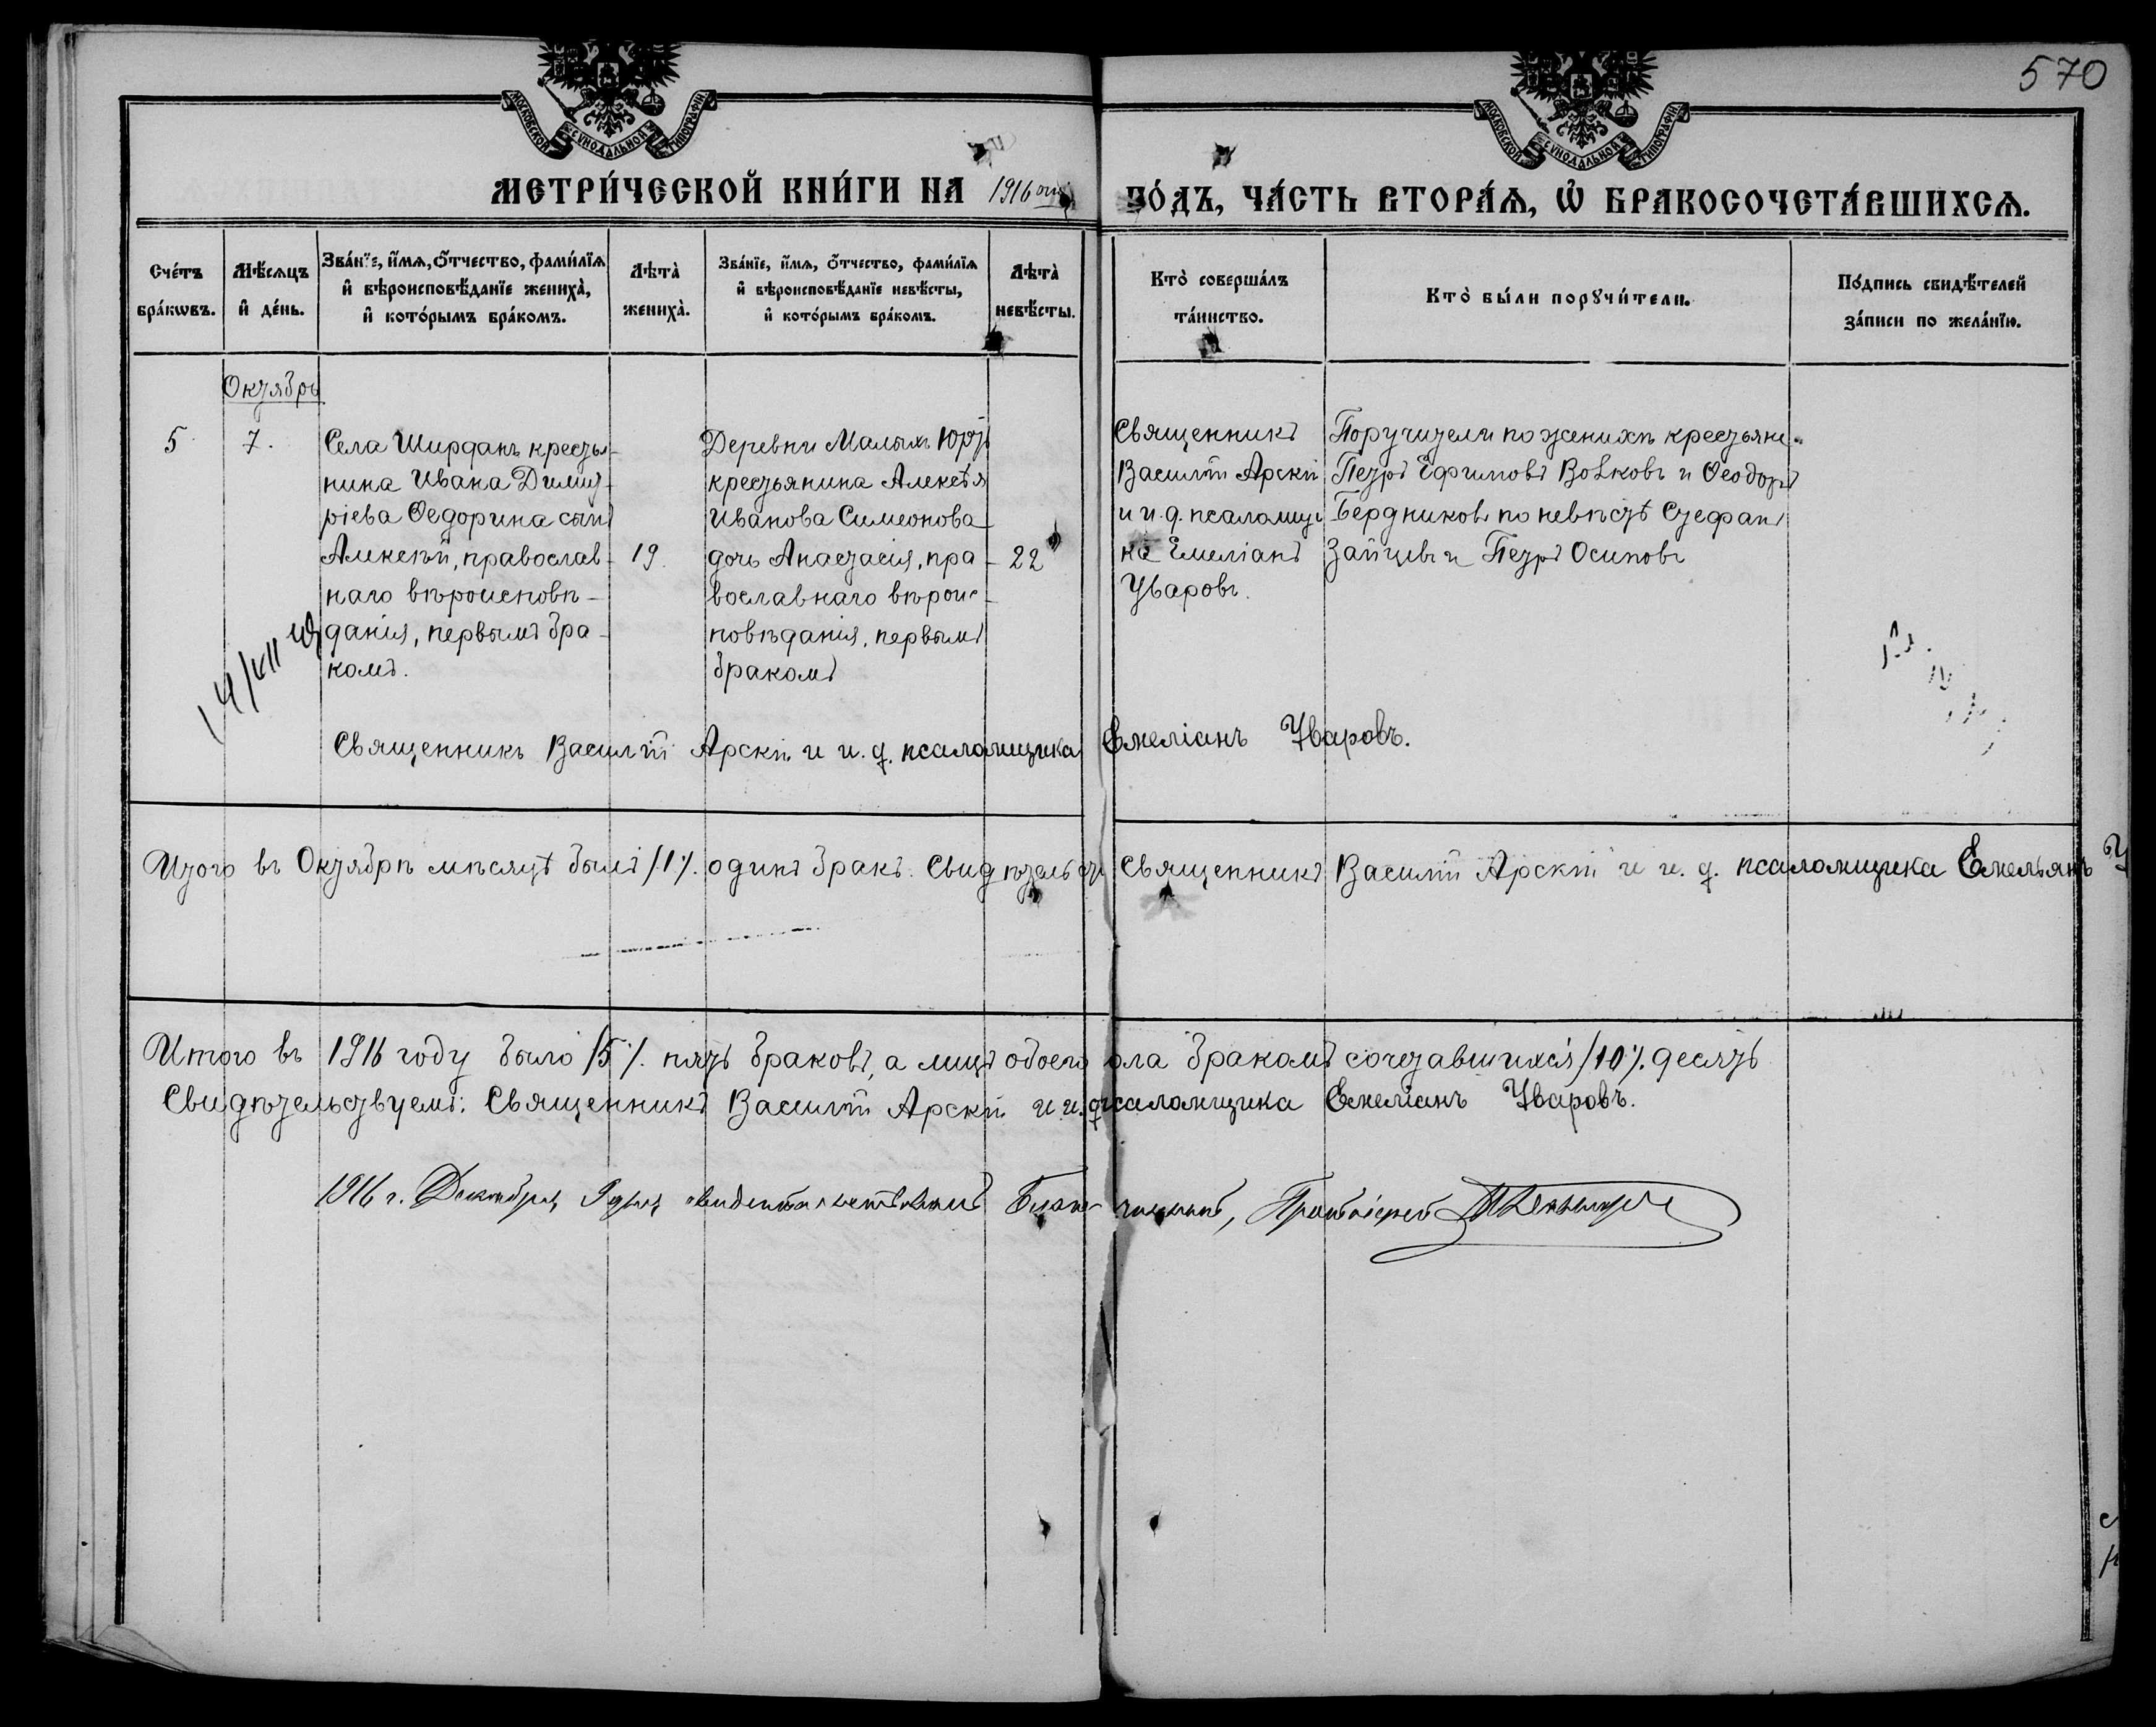 570
МОСКОВСКОЙ СѴНОДАЛЬНОЙ ТИПОГРАФІИ.
МОСКОВСКОЙ СѴНОДАЛЬНОЙ ТИПОГРАФІИ.
МЕТРИ́ЧЕСКОЙ КНИ́ГИ НА 1916 ый
ГО́ДЪ, ЧА́СТЬ ВТОРА́Ѧ, Ѽ БРАКОСОЧЕТА́ВШИХСѦ.
Сче́тъ
бра́кѡвъ.
Мѣ́сѧцъ
и҆ де́нь.
Зва́нїе, и҆́мѧ, ѻ҆́тчество, фами́лїѧ
и҆ вѣроисповѣ́данїе жениха̀,
и҆ кото́рымъ бра́комъ.
Лѣта̀
жениха̀.
Зва́нїе, и҆́мѧ, ѻ҆́тчество, фами́лїѧ
и҆ вѣроисповѣ́данїе невѣ́сты,
и҆ кото́рымъ бра́комъ.
Лѣта̀
невѣ́сты.
Кто̀ соверша́лъ
та́инство.
Кто̀ бы́ли порꙋчи́тели.
По́дпись свидѣ́телей
за́писи по жела́нїю.
Октябрь
5
7.
Села Ширданъ крестья-
нина Ивана Димит-
ріева Ѳедорина сынъ
Алексѣй, православ-
наго вѣроисповѣ-
данія, первымъ бра-
комъ.
19.
Деревни Малыхъ
крестьянина Алексѣя
Иванова Симеонова
дочь Анастасія, пра-
вославнаго вѣроис-
повѣданія, первымъ
бракомъ
22
Священникъ
Василій Арскій
и и. д. псаломщи
ка Емеліанъ
Уваровъ.
Поручители по женихѣ крестьяне
Петръ Ефимовъ Волковъ и Ѳеодоръ
Бердниковъ по невѣстѣ Стефанъ
Зайцевъ и Петръ Осиповъ
Священникъ Василій Арскій и и. д. псаломщика Емеліанъ Уваровъ.
Итого въ Октябрѣ мѣсяцѣ былъ /1/. одинъ бракъ. Свидѣтельст Священникъ Василій Арскій и и. д. псаломщика Емельянъ У
Итого въ 1916 году было /5/. пять браковъ, а лицъ обоего ола бракомъ сочетавшихся /10/. десять
Свидѣтельствуемъ: Священникъ Василій Арскій и и. д. псаломщика Емеліанъ Уваровъ.
1916 г. Декабря дня свидетельствовалъ Благочинный, Протоіерей